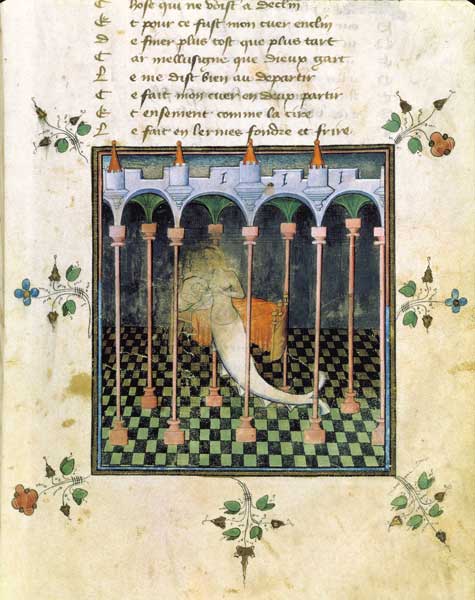 Chose qui ne venist a declin
Et pour ce fust mon cuer enclin
De finer plus tost que plus tart
Car mellusigne que dieux gart
Le me dist bien au departir
Ce fait mon cuer en deux partir
Et ensement comme la cire
Le fait en lermes fondre et frire